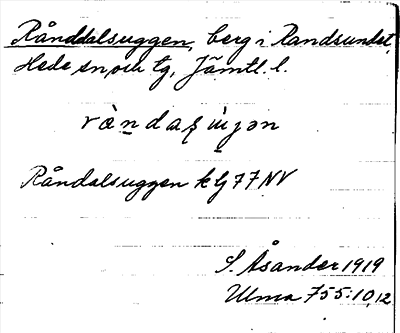 Rånddalsuggen, berg i Randsundet,
Hede sn, och tg, Jämtl. l.
Råndalsuggen kG77NV
S. Åsander 1919
Ulma 755:10,12